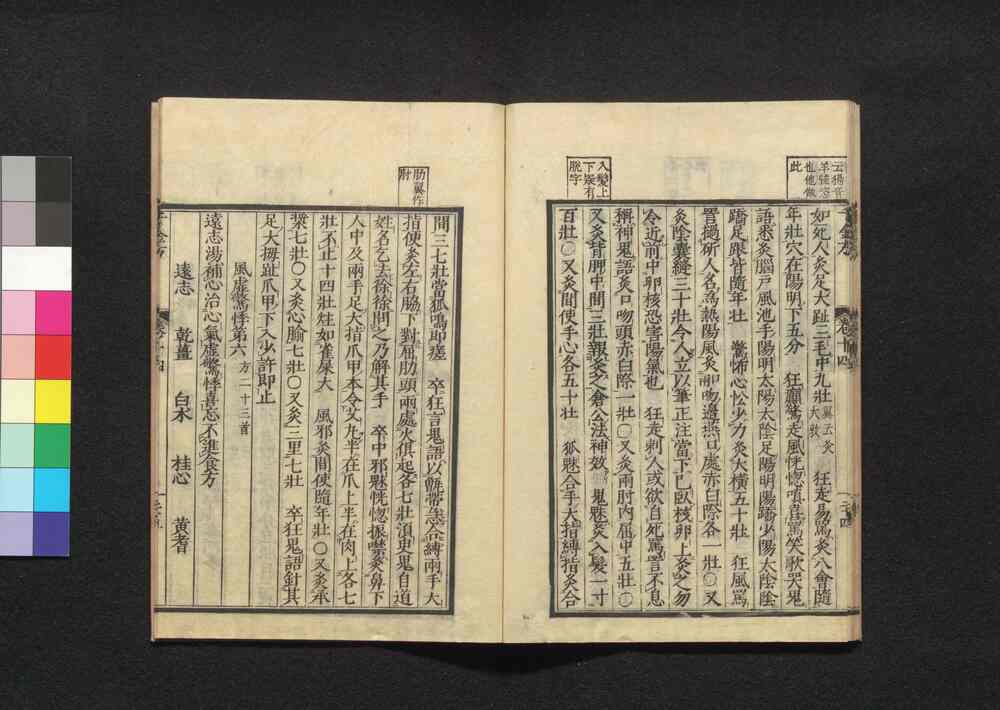 云揚音
羊雖容
也他倣
此
入髮上
下疑有
脫字
如死人灸足大趾三毛中九壯翼云灸大敦 狂走易罵灸八會隨
年壯穴在陽明下五分 狂癲驚走風恍惚嗔喜罵笑歌哭鬼
語悉灸腦戶風池手陽明太陽太陰足陽明陽蹻少陽太陰陰
蹻足跟皆隨年壯 驚怖心忪少力灸大橫五十壯 狂風罵
詈撾斫人名為熱陽風灸口吻邊燕口處赤白際各一壯〇又
灸陰囊縫三十壯令人立以筆正注當下已臥核卵上灸之勿
令近前中卵核恐害陽氣也 狂走刺人或欲自死罵詈不息
稱神鬼語灸口吻頭赤白際一壯〇又灸兩肘內屈中五壯〇
又灸背胛中間三壯報灸之倉公法神效 鬼魅灸入髮一寸
百壯〇又灸間使手心各五十壯 狐魅合手大指縛指灸合
肋翼作
肘
間三七壯當狐鳴即瘥 卒狂言鬼語以甑帶急合縛兩手大
指便灸左右脇下對屈肋頭兩處火俱起各七壯須臾鬼自道
姓名乞去徐徐問之乃解其手 卒中邪魅恍惚振噤灸鼻下
人中及兩手足大指爪甲本令艾丸半在爪上半在肉上各七
壯不止十四壯炷如雀屎大 風邪灸間使隨年壯〇又灸承
漿七壯〇又灸心腧七壯〇又灸三里七壯 卒狂鬼語針其
足大拇趾爪甲下入少許即止
風虛驚悸第六方二十三首
遠志湯補心治心氣虛驚悸喜忘不進食方
遠志 乾薑 白朮 桂心 黃耆